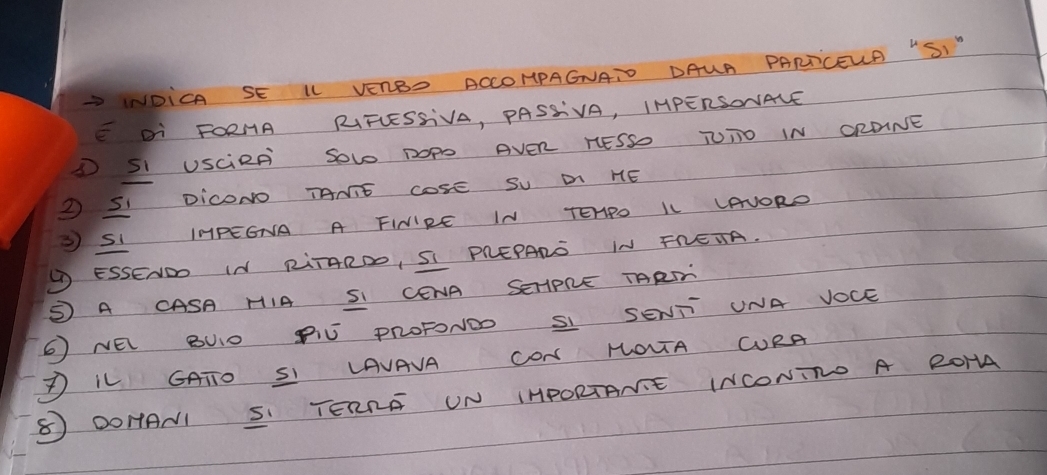 → INDICA SE IL VERBO ACCOMPAGNATO DALLA PARTICELLA "SI"
È DI FORMA RIFLESSIVA, PASSIVA, IMPERSONALE
1) SI USCIRÀ SOLO DOPO AVER MESSO TUTTO IN ORDINE
2) SI DICONO TANTE COSE SU DI ME
3) SI IMPEGNA A FINIRE IN TEMPO IL LAVORO
4) ESSENDO IN RITARDO, SI PREPARÒ IN FRETTA.
5) A CASA MIA SI CENA SEMPRE TARDI
6) NEL BUIO PIÙ PROFONDO SI SENTÌ UNA VOCE
7) IL GATTO SI LAVAVA CON MOLTA CURA
8) DOMANI SI TERRÀ UN IMPORTANTE INCONTRO A ROMA